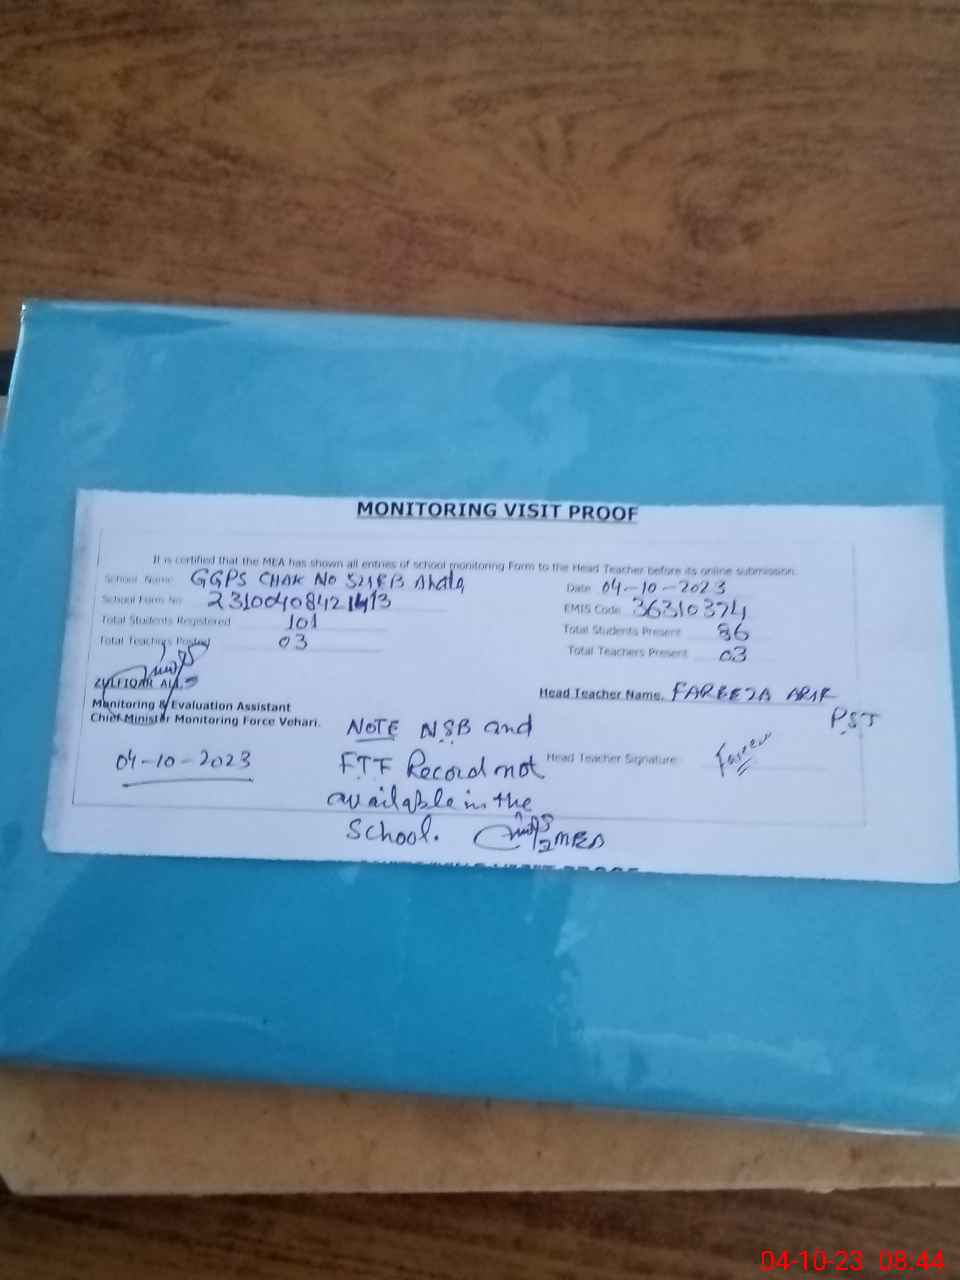 MONITORING VISIT PROOF
It is certified that the MEA has shown all entries of school monitoring Form to the Head Teacher before its online submission.
School Name GGPS CHAK No
Date 04-10-2023
School Form No
EMIS Code 36310374
Total Students Registered 101
Total Students Present 86
Total Teachers Posted 03
Total Teachers Present 03
ZULFIQAR ALI
Monitoring & Evaluation Assistant
Chief Minister Monitoring Force Vehari.
04-10-2023
Head Teacher Name. FAREEZA
PST
Head Teacher Signature
NOTE NSB and
FTF Record not
available in the
School. MEA
04-10-23 08:44